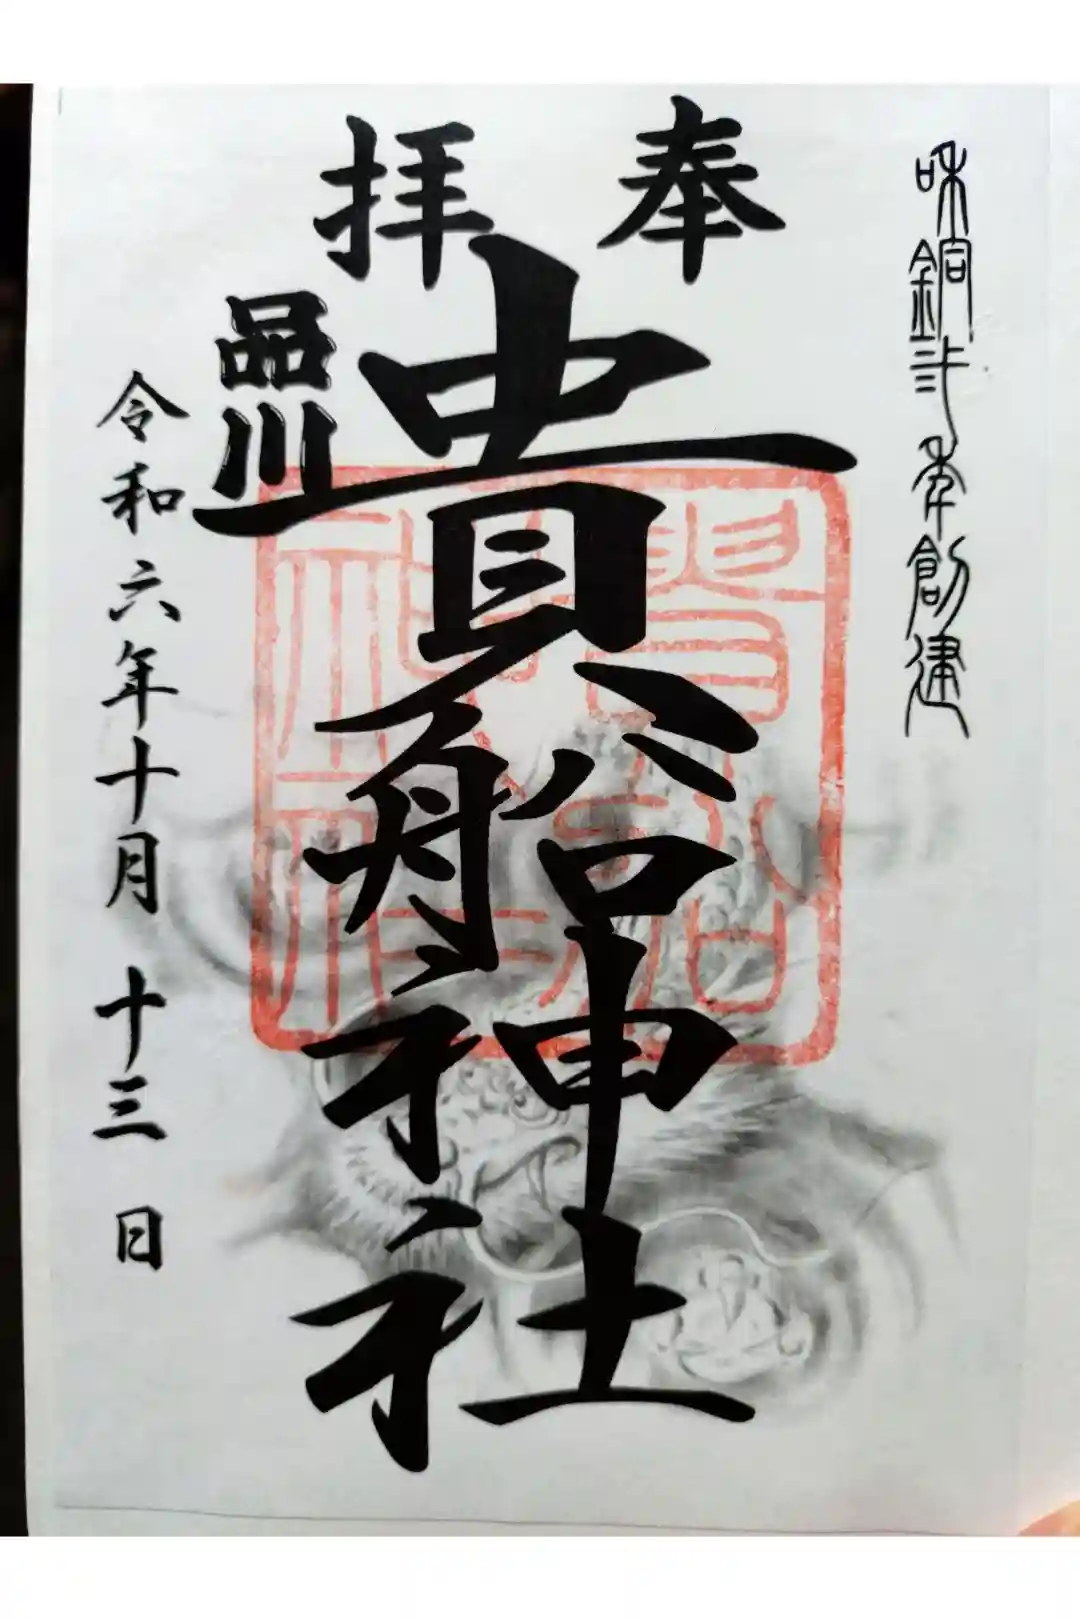 和銅弐年創建
奉拝
貴船神社
品川
令和六年十月十三日